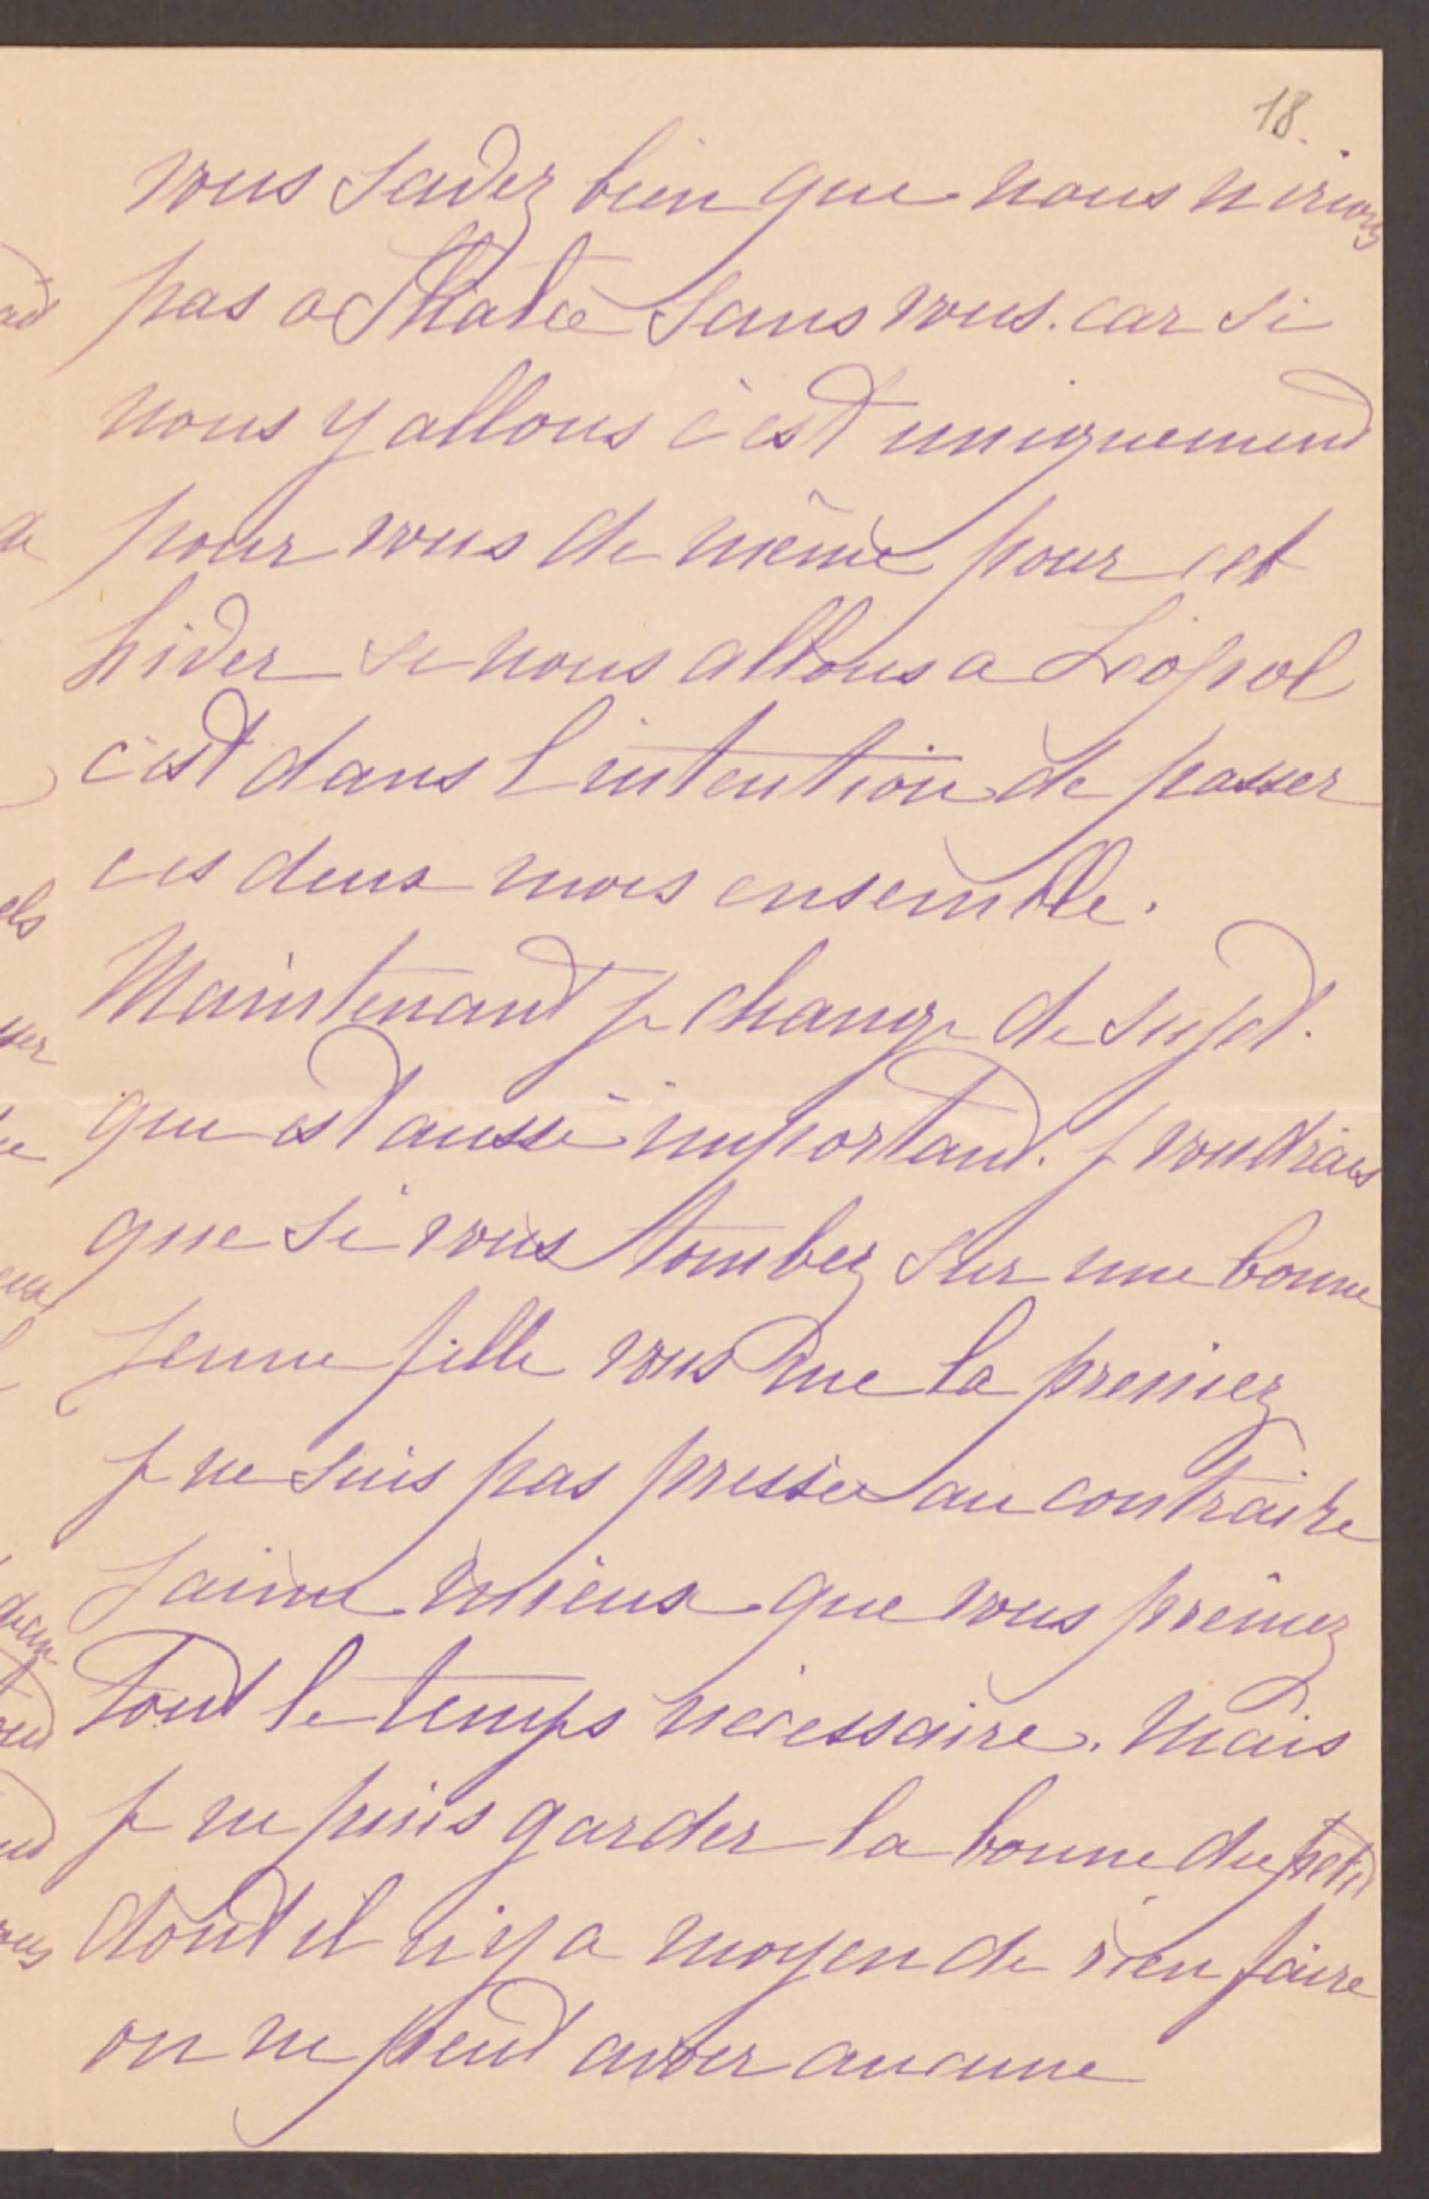 18.
vous savez bien que nous n irions
pas a sans vous. car si
nous y allons c'est uniquement
pour vous de même pour cet
hiver si nous allons a Léopol
c'est dans l intention de passer
ces deux mois ensemble.
Maintenant je change de sujet.
qui est aussi important. je voudrais
que si vous tombez sur une bonne
jeune fille vous me la preniez
je ne suis pas pressée au contraire
j aime mieux que vous preniez
tout le temps nécessaire. Mais
je ne puis garder la bonne du petit
dont il n'y a moyen de rien faire
on ne peut avoir aucune